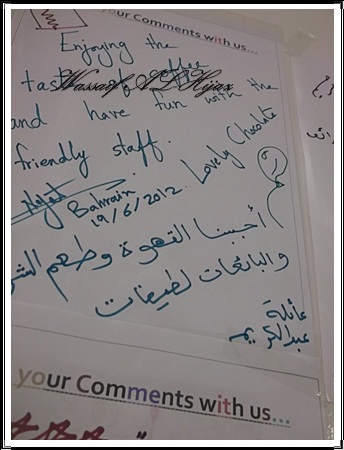 your Comments with us...
Enjoying the
taste coffee
Wassaif AL Hijaz
and have fun with the
friendly staff.
Lovely Chocolate
Bahrain
19/6/2012
أحببنا القهوة وطعم الشو
والبائعات لطيفات
عائلة
عبدالكريم
your Comments with us...